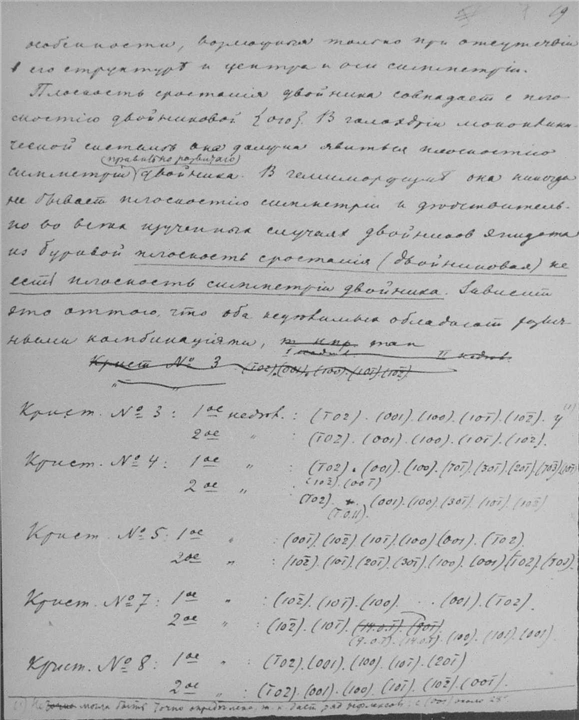 69
особенности, возможныя только при отсутствіи
въ его структурѣ и центра и оси симметріи.
Плоскость сростанія двойника совпадаетъ съ плос-
костію двойниковой {010}. В голоэдріи моноклини-
ческой системы она должна явиться плоскостію
(правильно развитаго)
симметріи двойника. В гемиморфизмѣ она никогда
не бываетъ плоскостію симметріи и действитель-
но во всѣхъ изученныхъ случаяхъ двойниковъ эпидота
изъ Буровой плоскость сростанія (двойниковая) не
есть плоскость симметріи двойника. Зависитъ
это оттого, что оба недѣлимыя обладаютъ различ-
ными комбинаціями,
Крист № 3 (1̄02)(001)(100)(101̄)(102̄)
Крист. № 3: 1ое недѣл. : (1̄02). (001). (100). (101̄). (102̄). y (1)
2ое " : (1̄02). (001). (100). (101̄). (102̄).
Крист. № 4: 1ое " : (1̄02). (001). (100). (101̄). (301̄) (201̄)
(102̄). (001̄)
2ое " : (1̄02). (001). (100). (301̄). (101̄). (102̄)
(1̄01).
Крист. № 5: 1ое " : (001̄). (102̄) (101̄) (100) (001). (1̄02)
2ое " : (102̄). (101̄). (201̄). (301̄). (100). (001) (1̄02). (1̄01).
Крист. № 7: 1ое " : (102̄). (101̄). (100). . . (001). (1̄02).
2ое " : (102̄). (101̄).
(100). (101). (001).
Крист. № 8: 1ое " : (1̄02). (001). (100). (101̄) (201̄)
2ое " : (1̄02). (001). (100) (101̄). (102̄). (001̄).
(1) Не можетъ быть точно опредѣлено, т. к. даетъ рядъ рефлексовъ; с (100) около 25°